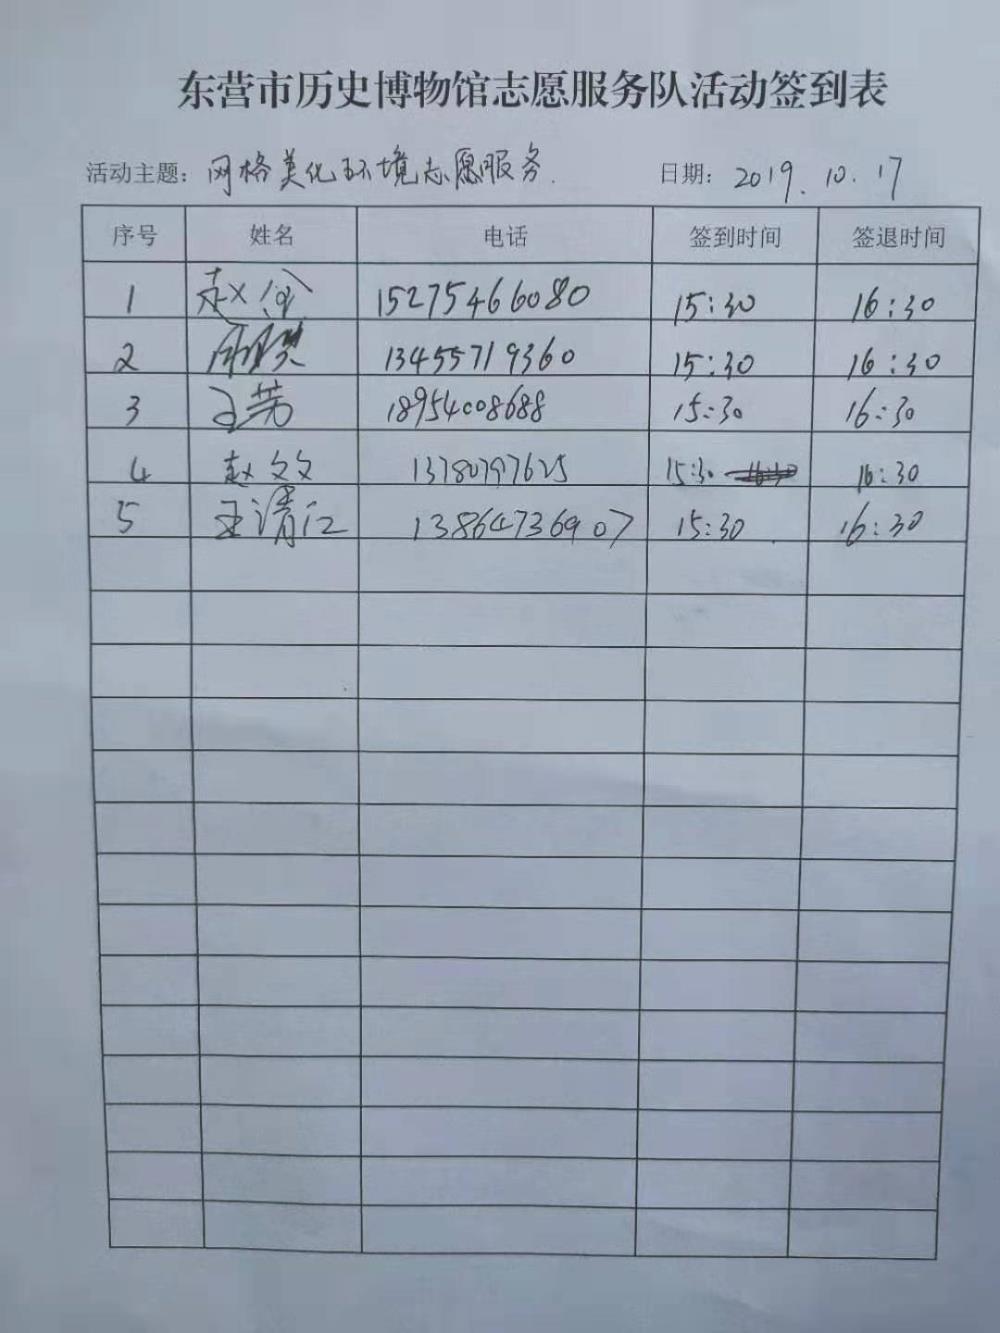 东营市历史博物馆志愿服务队活动签到表
活动主题：网格美化环境志愿服务. 日期：2019.10.17
序号 姓名 电话 签到时间 签退时间
1 赵 15275466080 15:30 16:30
2 13455719360 15:30 16:30
3 王芳 18954008688 15:30 16:30
4 赵文文 13780797625 15:30 16:30
5 王清江 13864736907 15:30 16:30